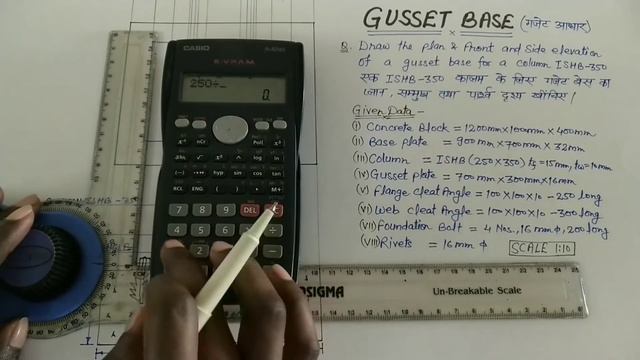 GUSSET BASE (गजेट आधार)
Q. Draw the plan & front and side elevation
of a gusset base for a column ISHB-350
एक ISHB-350 कालम के लिए गजेट बेस का
प्लान, सम्मुख तथा पार्श्व दृश्य खींचिए।
Given Data -
(I) Concrete Block = 1200mm×100mm×400mm
(II) Base plate = 900mm×700mm×32mm
(III) Column = ISHB (250×350) tf=15mm, tw=10mm
(IV) Gusset plate = 700mm×300mm×16mm
(V) Flange Cleat Angle = 100×100×10 -250 long
(VI) Web Cleat Angle = 100×100×10 -300 long
(VII) Foundation Bolt = 4 Nos., 16mm Φ, 200 long
(VIII) Rivets = 16mm Φ
SCALE 1:10
CASIO
250÷_
0.
x! nCr
log ln
hyp sin cos tan
RCL ENG ( ) , M+
7 8 9 DEL
4 5
2
OSIGMA
Un-Breakable Scale